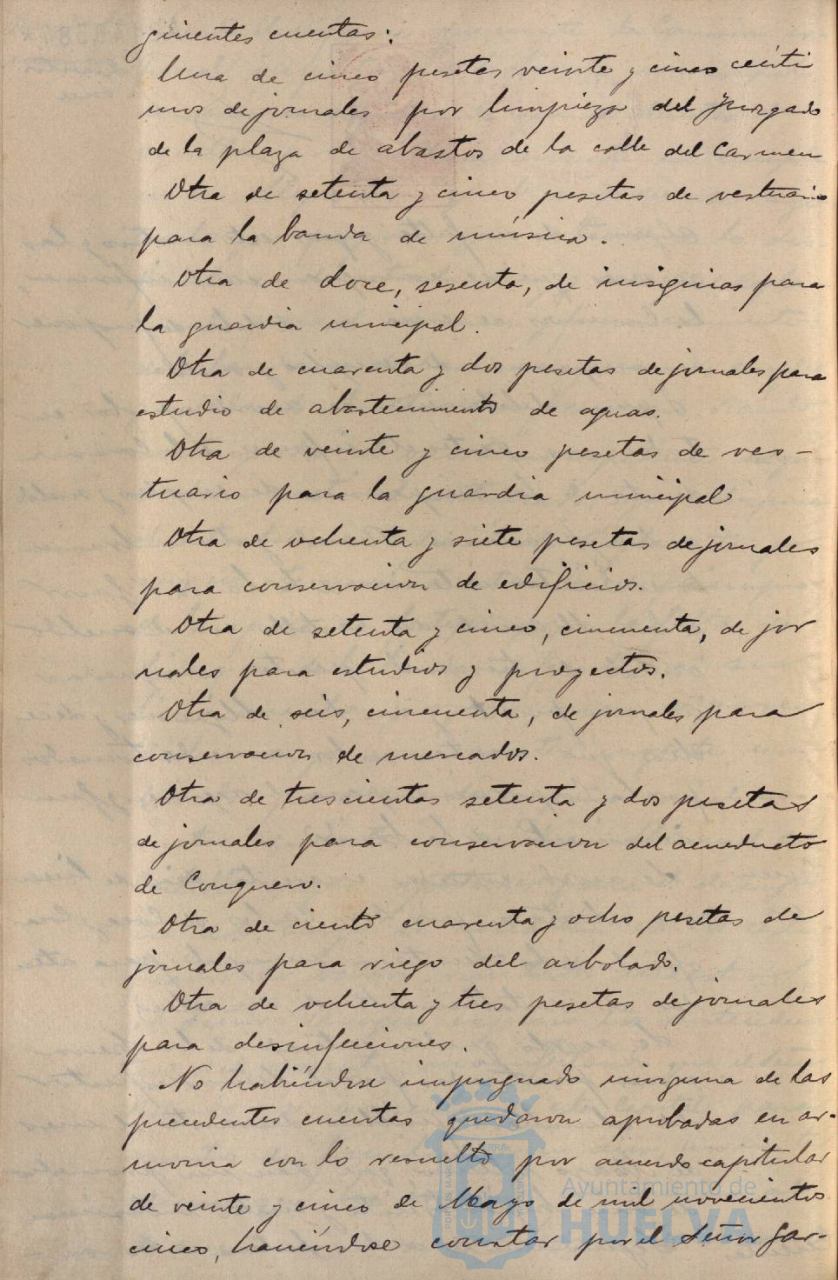 guientes cuentas:
Una de cinco pesetas veinte y cinco cénti
mos de jornales por limpieza del Juzgado
de la plaza de abastos de la calle del Carmen
Otra de setenta y cinco pesetas de vestuario
para la banda de música.
Otra de doce, sesenta, de insignias para
la guardia municipal.
Otra de cuarenta y dos pesetas de jornales para
estudio de abastecimiento de aguas.
Otra de veinte y cinco pesetas de ves-
tuario para la guardia municipal
Otra de ochenta y siete pesetas de jornales
para conservacion de edificios.
Otra de setenta y cinco, cincuenta, de jor
nales para estudios y proyectos.
Otra de seis, cincuenta, de jornales para
conservacion de mercados.
Otra de trescientas setenta y dos pesetas
de jornales para conservacion del acueducto
de Conquero.
Otra de ciento cuarenta y ocho pesetas de
jornales para riego del arbolado.
Otra de ochenta y tres pesetas de jornales
para desinfecciones.
No habiéndose impugnado ninguna de las
precedentes cuentas quedaron aprobadas en ar-
monia con lo resuelto por acuerdo capitular
de veinte y cinco de Mayo de mil novecientos
cinco, haciéndose constar por el Señor Gar-
Ayuntamiento de
HUELVA